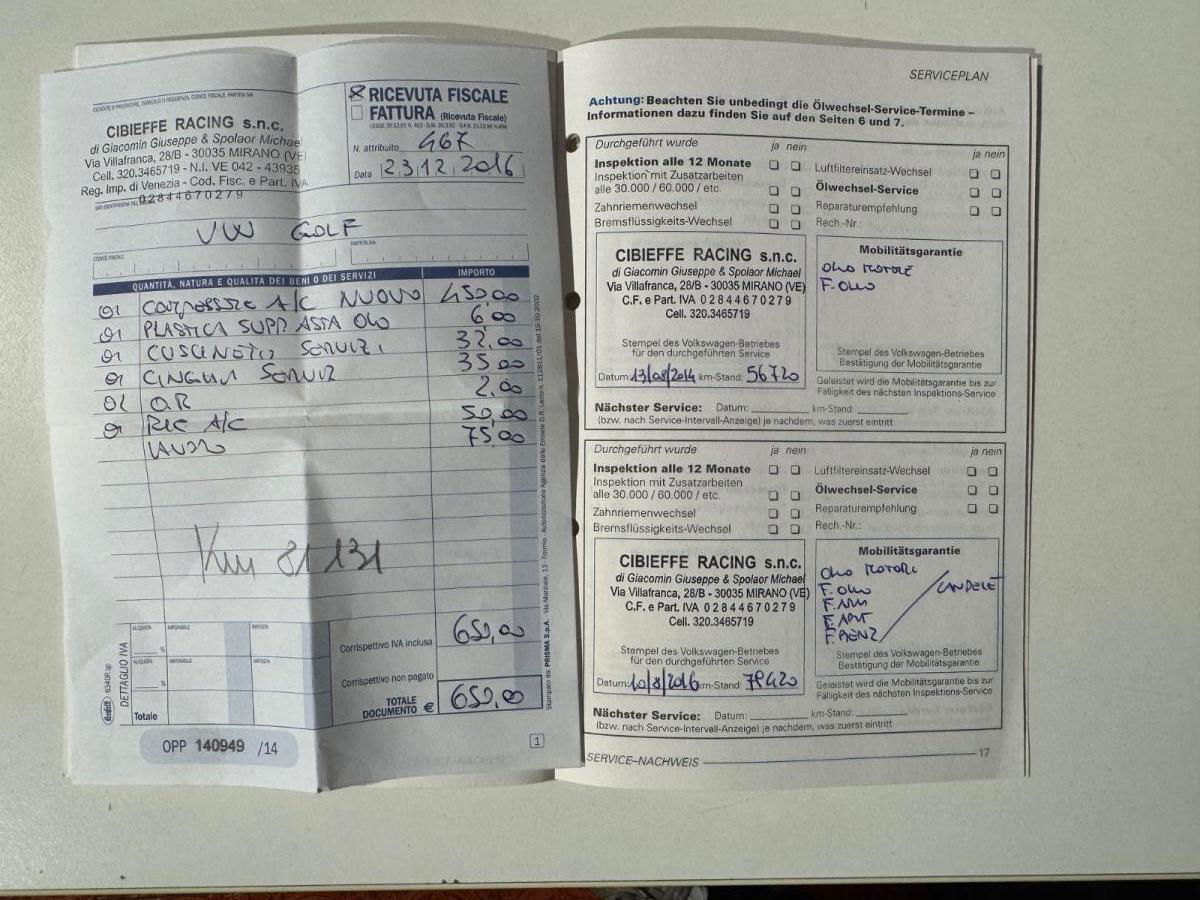 RICEVUTA FISCALE
FATTURA (Ricevuta Fiscale)
N. attribuito 467
Data 23.12.2016
CIBIEFFE RACING s.n.c.
di Giacomin Giuseppe & Spolaor Michael
Via Villafranca, 28/B - 30035 MIRANO (VE)
Cell. 320.3465719 - N.I. VE 042 - 43935
Reg. Imp. di Venezia - Cod. Fisc. e Part. IVA
02844670279
VW GOLF
CODICE FISCALE
PARTITA IVA
QUANTITÀ, NATURA E QUALITÀ DEI BENI O DEI SERVIZI IMPORTO
01 COMPRESSORE A/C NUOVO 450,00
01 PLASTICA SUPP ASTA OLIO 6,00
01 CUSCINETTO SERVIZI 32,00
01 CINGHIA SERVIZI 35,00
02 O.R 2,00
01 RIC A/C 50,00
LAVORO 75,00
Km 81131
DETTAGLIO IVA
ALIQUOTA IMPONIBILE IMPOSTA
%
ALIQUOTA IMPONIBILE IMPOSTA
%
Totale
Corrispettivo IVA inclusa 650,00
Corrispettivo non pagato
TOTALE
DOCUMENTO € 650,00
OPP 140949 /14
1
SERVICEPLAN
Achtung: Beachten Sie unbedingt die Ölwechsel-Service-Termine –
Informationen dazu finden Sie auf den Seiten 6 und 7.
Durchgeführt wurde ja nein ja nein
Inspektion alle 12 Monate
Inspektion mit Zusatzarbeiten
alle 30.000 / 60.000 / etc.
Zahnriemenwechsel
Bremsflüssigkeits-Wechsel
Luftfiltereinsatz-Wechsel
Ölwechsel-Service
Reparaturempfehlung
Rech.-Nr.:
CIBIEFFE RACING s.n.c.
di Giacomin Giuseppe & Spolaor Michael
Via Villafranca, 28/B - 30035 MIRANO (VE)
C.F. e Part. IVA 02844670279
Cell. 320.3465719
Stempel des Volkswagen-Betriebes
für den durchgeführten Service
Datum: 13/08/2014 km-Stand: 56720
Mobilitätsgarantie
OLIO MOTORE
F. OLIO
Stempel des Volkswagen-Betriebes
Bestätigung der Mobilitätsgarantie
Geleistet wird die Mobilitätsgarantie bis zur
Fälligkeit des nächsten Inspektions-Service
Nächster Service: Datum: km-Stand:
(bzw. nach Service-Intervall-Anzeige) je nachdem, was zuerst eintritt
Durchgeführt wurde ja nein ja nein
Inspektion alle 12 Monate
Inspektion mit Zusatzarbeiten
alle 30.000 / 60.000 / etc.
Zahnriemenwechsel
Bremsflüssigkeits-Wechsel
Luftfiltereinsatz-Wechsel
Ölwechsel-Service
Reparaturempfehlung
Rech.-Nr.:
CIBIEFFE RACING s.n.c.
di Giacomin Giuseppe & Spolaor Michael
Via Villafranca, 28/B - 30035 MIRANO (VE)
C.F. e Part. IVA 02844670279
Cell. 320.3465719
Stempel des Volkswagen-Betriebes
für den durchgeführten Service
Datum: 10/8/2016 km-Stand: 79420
Mobilitätsgarantie
OLIO MOTORE
F. OLIO CANDELE
F. ARIA
F. ANT
F. BENZ
Stempel des Volkswagen-Betriebes
Bestätigung der Mobilitätsgarantie
Geleistet wird die Mobilitätsgarantie bis zur
Fälligkeit des nächsten Inspektions-Service
Nächster Service: Datum: km-Stand:
(bzw. nach Service-Intervall-Anzeige) je nachdem, was zuerst eintritt
SERVICE–NACHWEIS 17